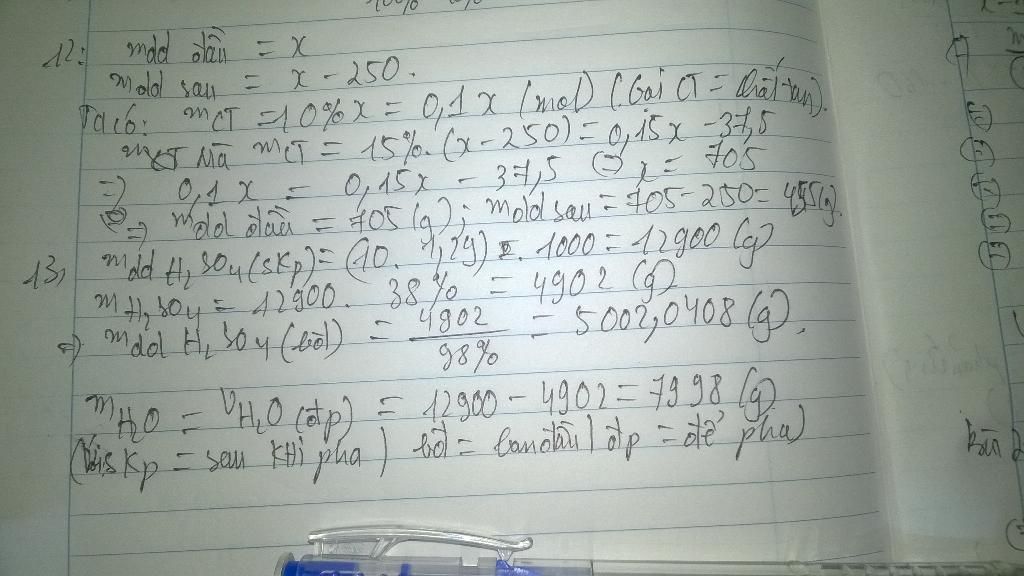 12: mdd đầu = x
mdd sau = x - 250.
Ta có: mCT = 10% x = 0,1 x (mol) (Gọi CT = chất tan).
Mà mCT = 15%. (x - 250) = 0,15x - 37,5
=> 0,1 x = 0,15x - 37,5 (=) x = 705
=> mdd đầu = 705 (g); mdd sau = 705 - 250 = 455 (g).
13, mdd H2SO4 (skp) = (10. 1,29) . 1000 = 12900 (g)
mH2SO4 = 12900. 38% = 4902 (g)
=> mdd H2SO4 (bđ) = 4902 / 98% = 5002,0408 (g).
mH2O = VH2O (đp) = 12900 - 4902 = 7998 (g)
(Với skp = sau khi pha) bđ = ban đầu | đp = để pha)